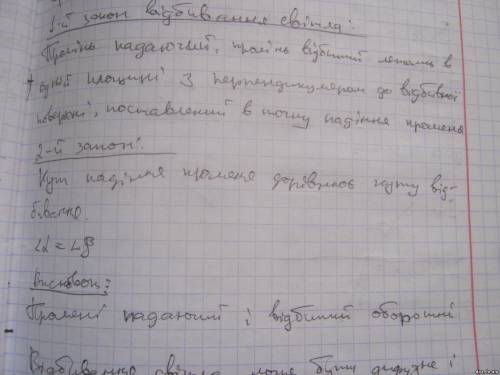 1-й закон відбивання світла:
Промінь падаючий, промінь відбитий лежать в
одній площині з перпендикуляром до відбивної
поверхні, поставлений в точку падіння променя
2-й закон:
Кут падіння променя дорівнює куту від-
бивання.
∠α = ∠β
Висновок:
Промені падаючий і відбитий оборотні
Відбивання світла може бути дифузне і